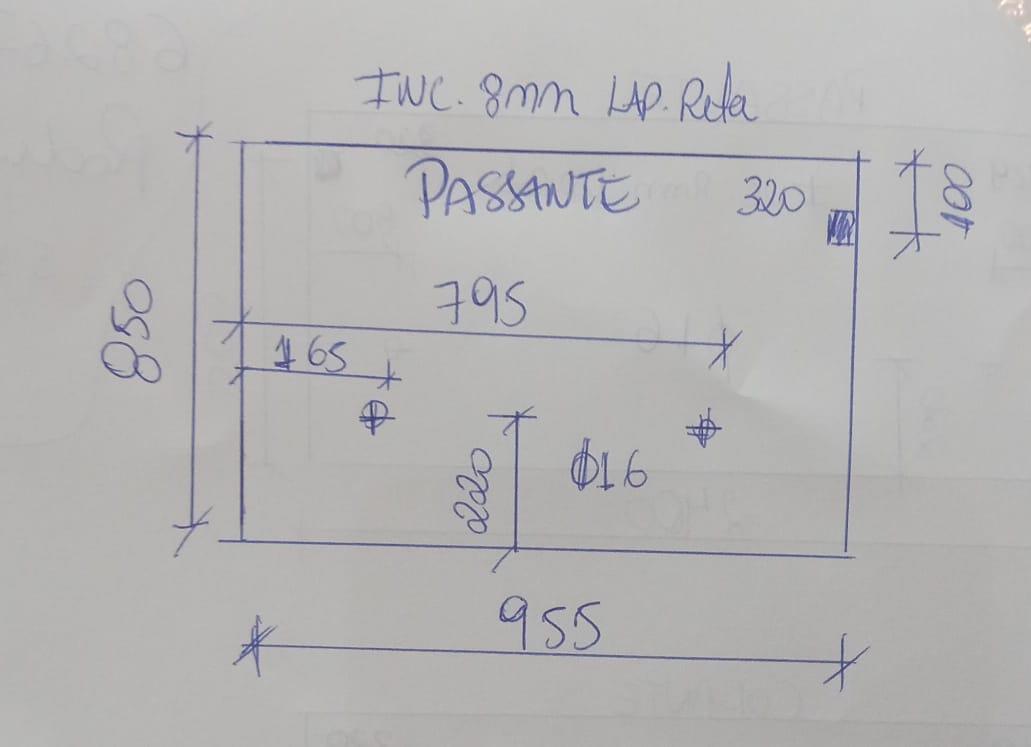 INC. 8mm LAP. Reta
PASSANTE
320
100
850
795
165
220
Φ16
955